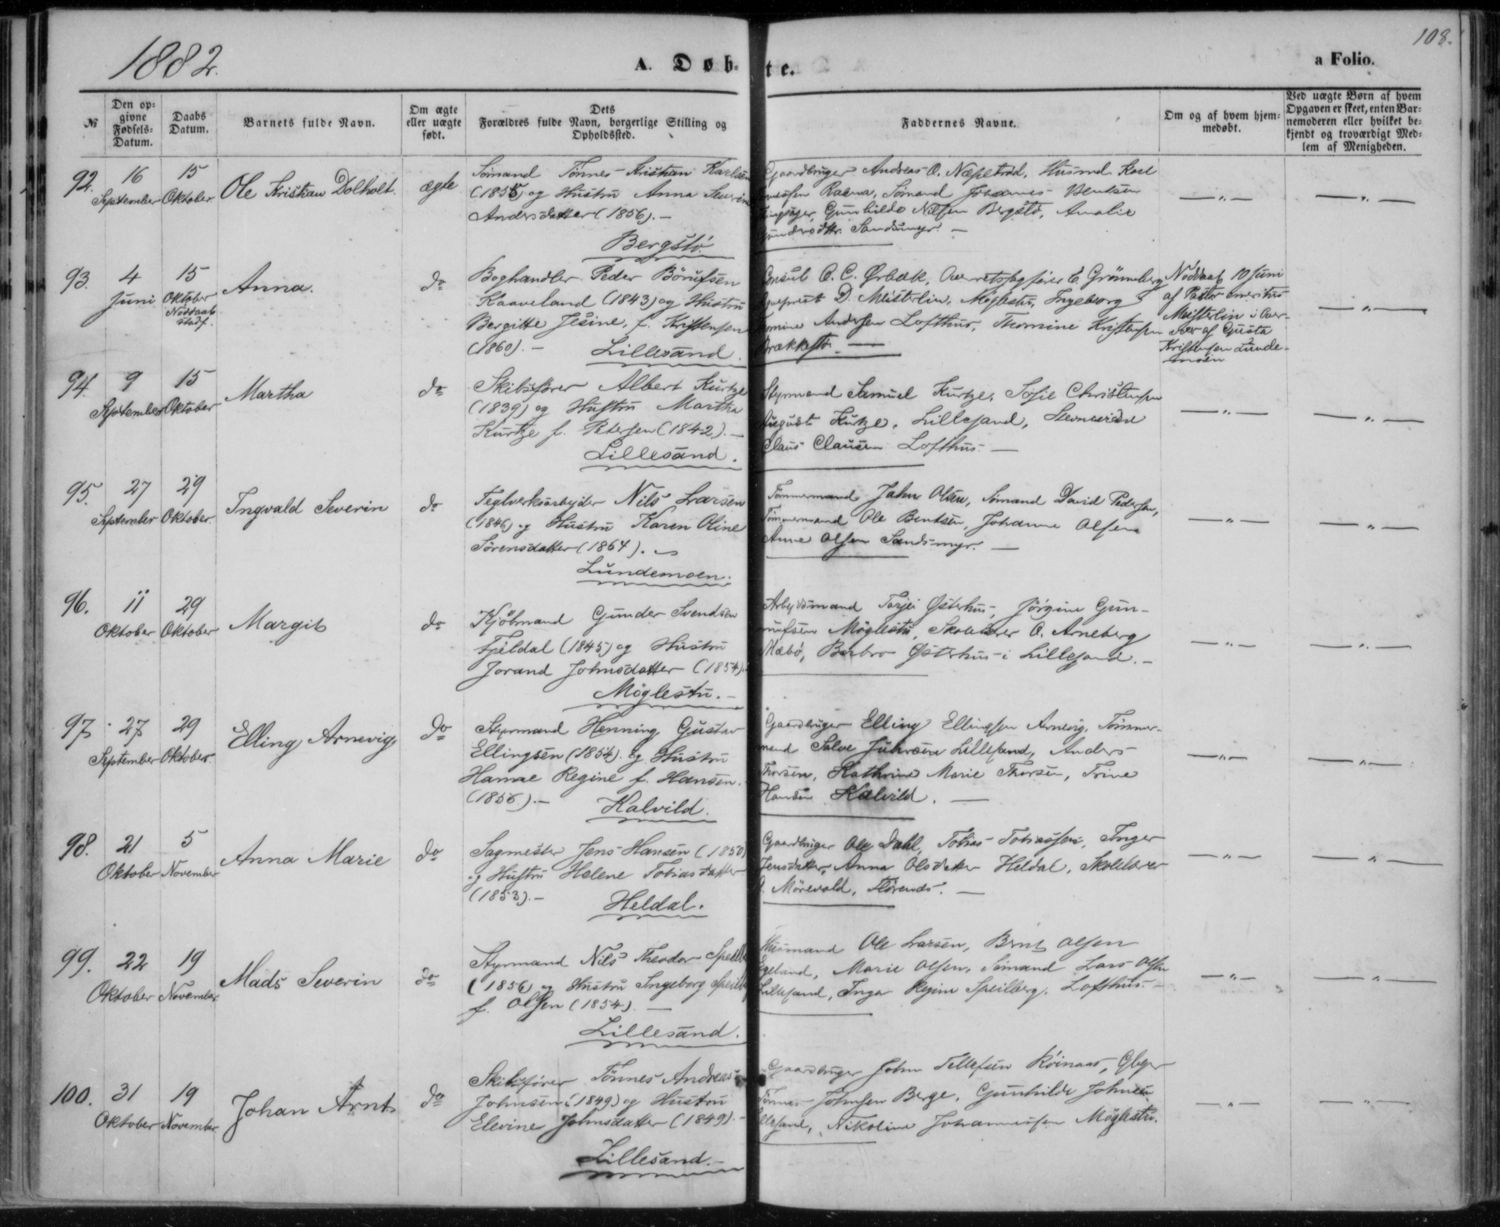 1882.
A. Døbte.
a Folio.
108.
№
Den opgivne Fødsels-Datum.
Daabs Datum.
Barnets fulde Navn.
Om ægte eller uægte født.
Dets Forældres fulde Navn, borgerlige Stilling og Opholdssted.
Faddernes Navne.
Om og af hvem hjemmedøbt.
Ved uægte Børn af hvem Opgaven er skeet, enten Barnemoderen eller hvilket bekjendt og troværdigt Medlem af Menigheden.
92.
16 September
15 Oktober
Ole Kristian Dolholt
ægte
Sømand Tønnes Kristian Karlsen
(1855) og Hustru Anna Severine
Andersdatter (1856). —
Bergstø
Gaardbruger Andreas O. Næpestad, Husmd
Sømand Johannes Bentsen
Gunhilde Nilsen Bergstø, Amalie
Sandsmyr. —
— " —
— " —
93.
4 Juni
15 Oktober
Anna.
do
Boghandler Peder Börufsen
Kaaveland (1843) og Hustru
Bergitte Jesine, f. Kristensen
(1860). — Lillesand.
Consul C. C. Ørbæk, E. Grønneberg
D. Meistelin, Møglestu, Ingeborg
Andersen Lofthus, Thomine Kristensen
Brækkestø. —
Nøddøbt 10 Juni
af Pastor emeritus
Meistelin i
af Gusta
Kristensen Lunde-
moen
— " —
94.
9 September
15 Oktober
Martha
do
Skibsfører Albert Kurtze
(1839) og Hustru Martha
Kurtze f. Petersen (1842). —
Lillesand.
Styrmand Samuel Kurtze, Sofie Christensen
August Kurtze, Lillesand,
Claus Clausen Lofthus. —
— " —
— " —
95.
27 September
29 Oktober.
Ingvald Severin
do
Teglverksarbeider Nils Larsen
(1846) og Hustru Karen Oline
Sørensdatter (1864).
Lundemoen.
Tømmermand John Olsen, Sømand David Pedersen,
Tømmermand Ole Bentsen, Johanne Olsen
Anne Olsen Sandsmyr. —
— " —
— " —
96.
11 Oktober
29 Oktober
Margit
do
Kjøbmand Gunder Svendsen
Fjeldal (1845) og Hustru
Jorand Johnsdatter (1854).
Møglestu. —
Arbeidsmand Terjei Østerhus, Jørgine Gun-
nufsen Møglestu, Skolelærer O. Arneberg
Mæbø, Barbro Østerhus i Lillesand. —
— " —
— " —
97.
27 September
29 Oktober.
Elling Arnevig
do
Styrmand Henning Gustav
Ellingsen (1854) og Hustru
Hanne Regine f. Hansen.
(1856). — Kalvild.
Gaardbruger Elling Ellingsen Arnevig, Tømmer-
mand Salve Lillesand, Anders
Thorsen, Kathrine Marie Thorsen, Trine
Hansen Kalvild. —
— " —
— " —
98.
21 Oktober
5 November
Anna Marie
do
Sagmester Jens Hansen (1850)
og Hustru Helene Tobiasdatter
(1853). — Heldal.
Gaardbruger Ole Dahl, Tobias Tobiassen, Inger
Jensdatter, Anna Olsdatter Heldal, Skolelærer
O. Mørevold, Flørenæs. —
— " —
— " —
99.
22 Oktober
19 November
Mads Severin
do
Styrmand Nils Theodor Speilberg
(1856) og Hustru Ingeborg Speilberg
f. Olsen (1854). —
Lillesand.
Husmand Ole Larsen, Bernt Olsen
Egeland, Marie Olsen, Sømand Lars Olsen
Lillesand, Inga Regine Speilberg. Lofthus —
— " —
— " —
100.
31 Oktober
19 November
Johan Arnt
do
Skibsfører Tønnes Andreas
Johnsen (1849) og Hustru
Elevine Johnsdatter (1849). —
Lillesand. —
Gaardbruger John Tellefsen Røinaas,
Tønnes Johnsen Berge, Gunhilde Johnsen
Lillesand, Nikoline Johannessen Møglestu.
— " —
— " —